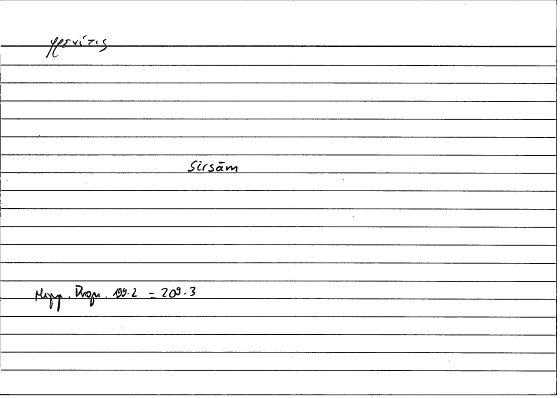 φρενίτις
Sirsām
Hipp. Progn. 199.2 = 209.3